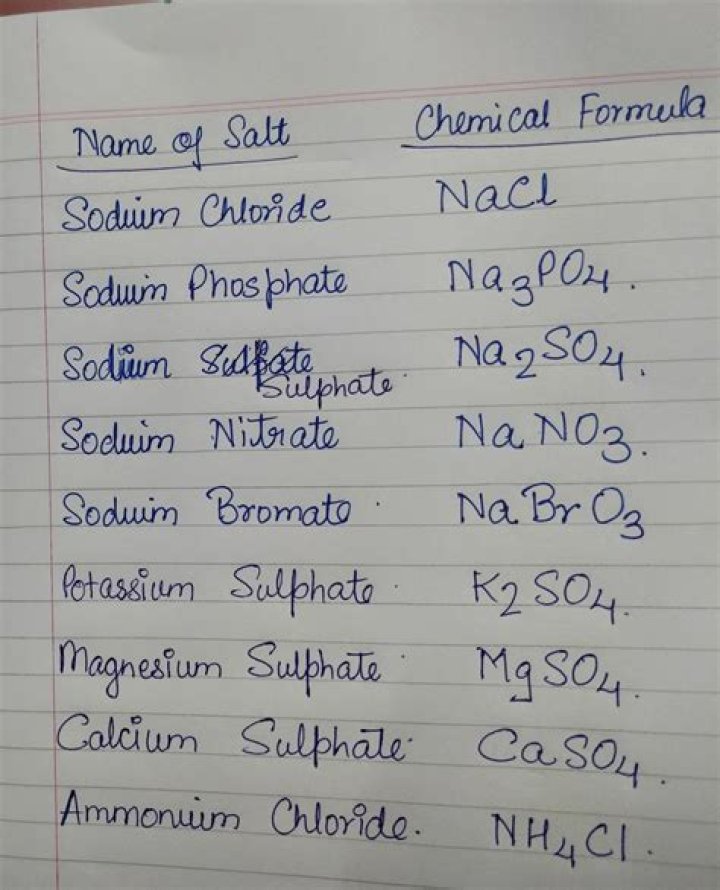 Name of Salt Chemical Formula
Sodium Chloride NaCl
Sodium Phosphate Na3PO4.
Sodium Na2SO4.
Sulphate.
Sodium Nitrate NaNO3.
Sodium Bromate. NaBrO3
Potassium Sulphate. K2SO4.
Magnesium Sulphate. MgSO4.
Calcium Sulphate. CaSO4.
Ammonium Chloride. NH4Cl.